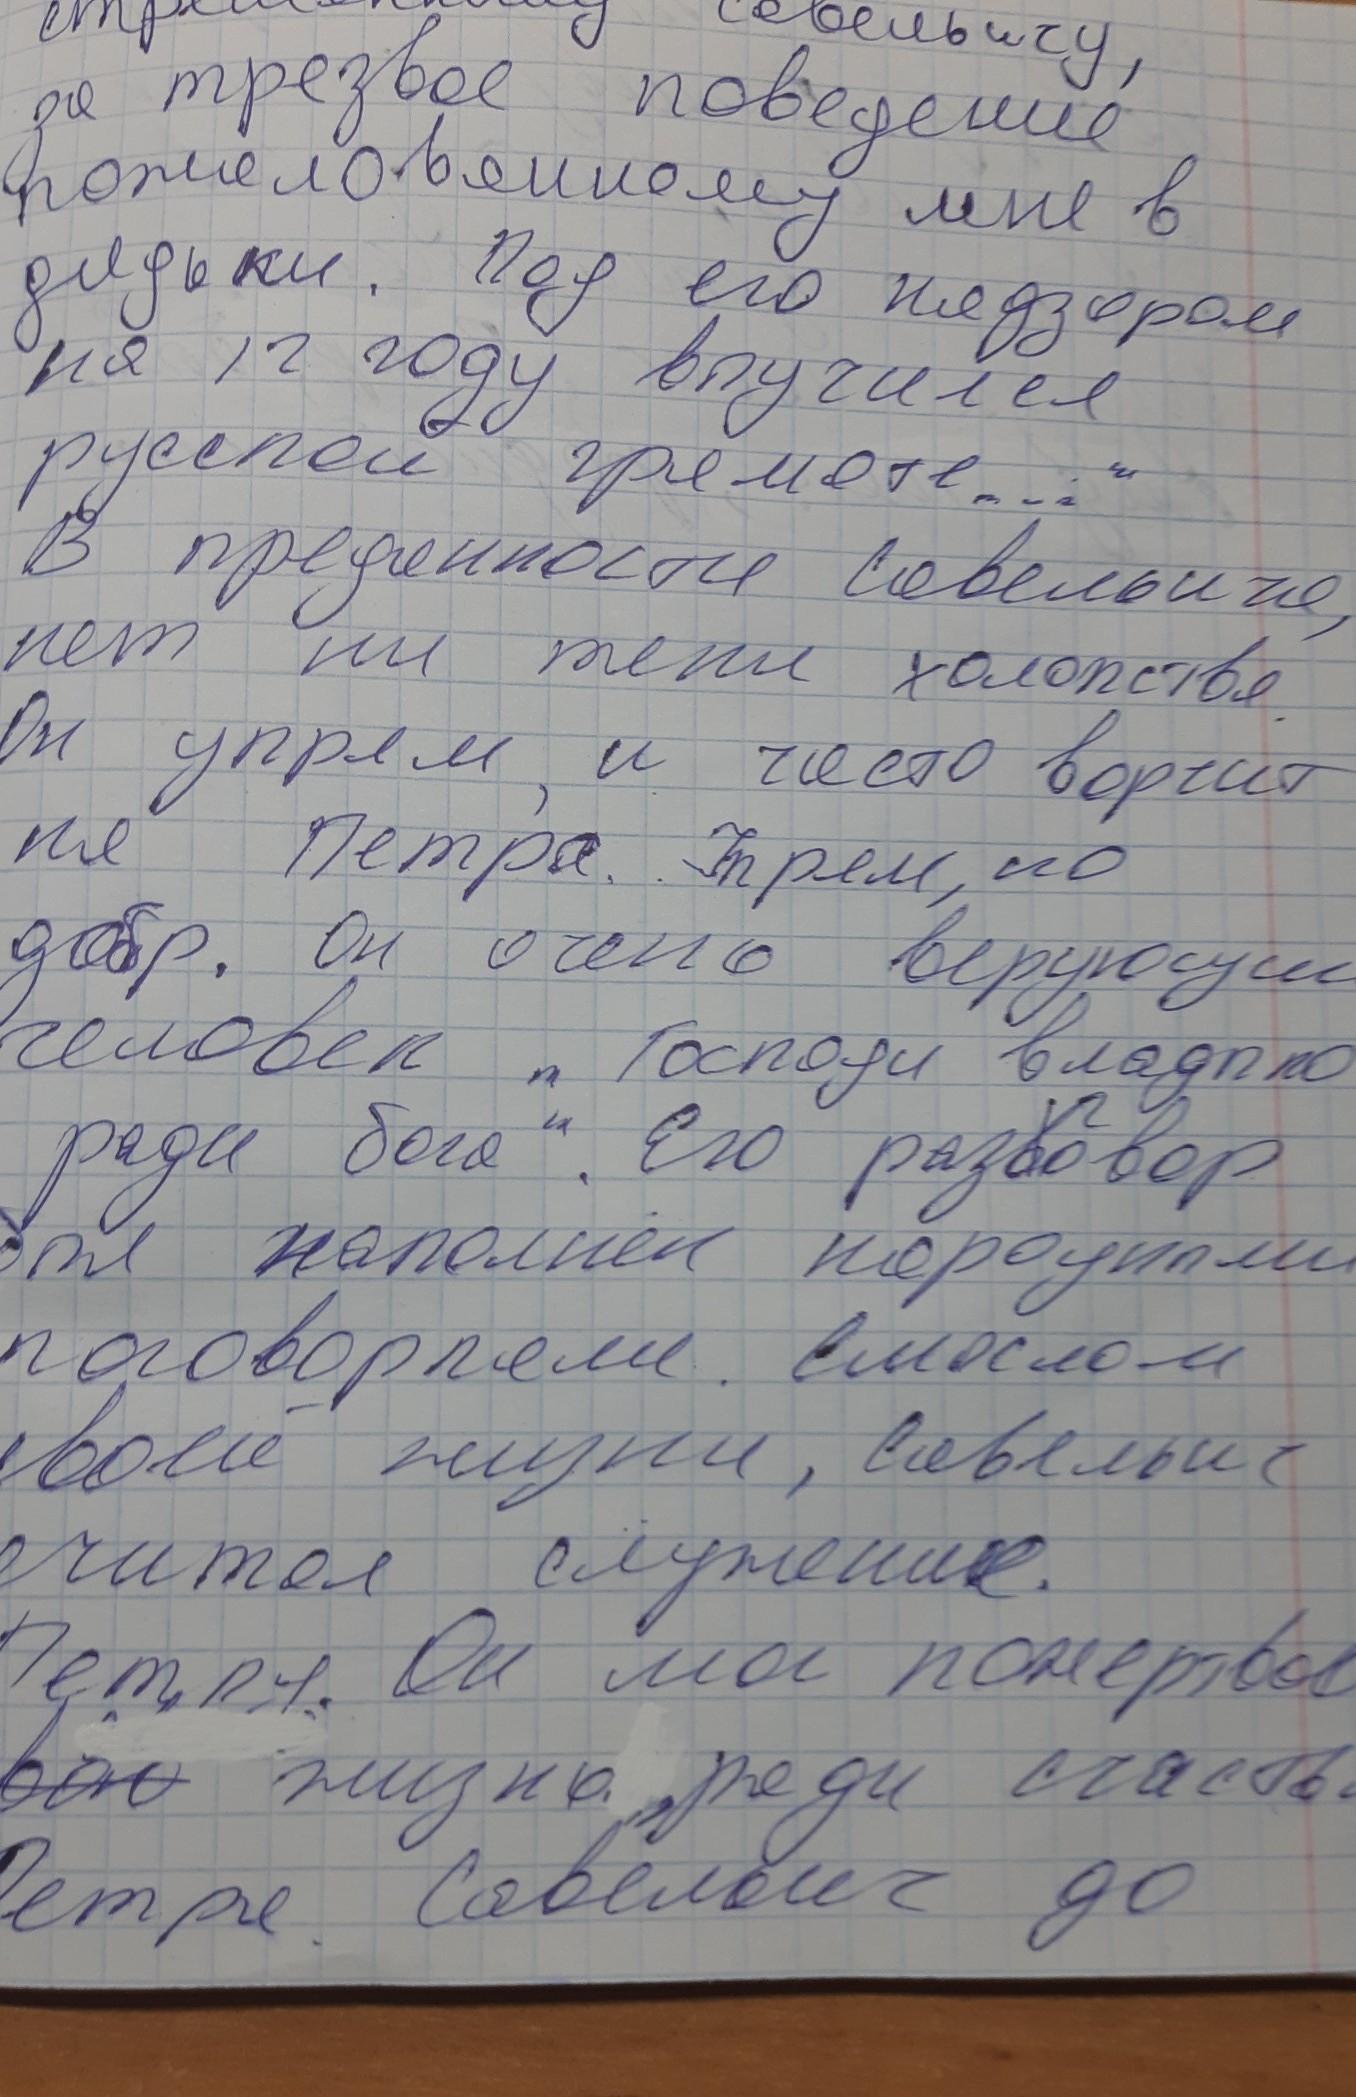 стремянному Савельичу,
за трезвое поведение
пожалованному мне в
дядьки. Под его надзором
на 12 году выучился
русской грамоте..."
В преданности Савельича,
нет ни тени холопства.
Он упрям, и часто ворчит
на Петра. Упрям, но
добр. Он очень верующи
человек „Господи владыко
ради бога". Его разговор
наполнен народными
поговорками. Смыслом
своей жизни, Савельич
считал служение.
Петру. Он мог пожертвов
жизнь, ради счасть
Петра. Савельич до